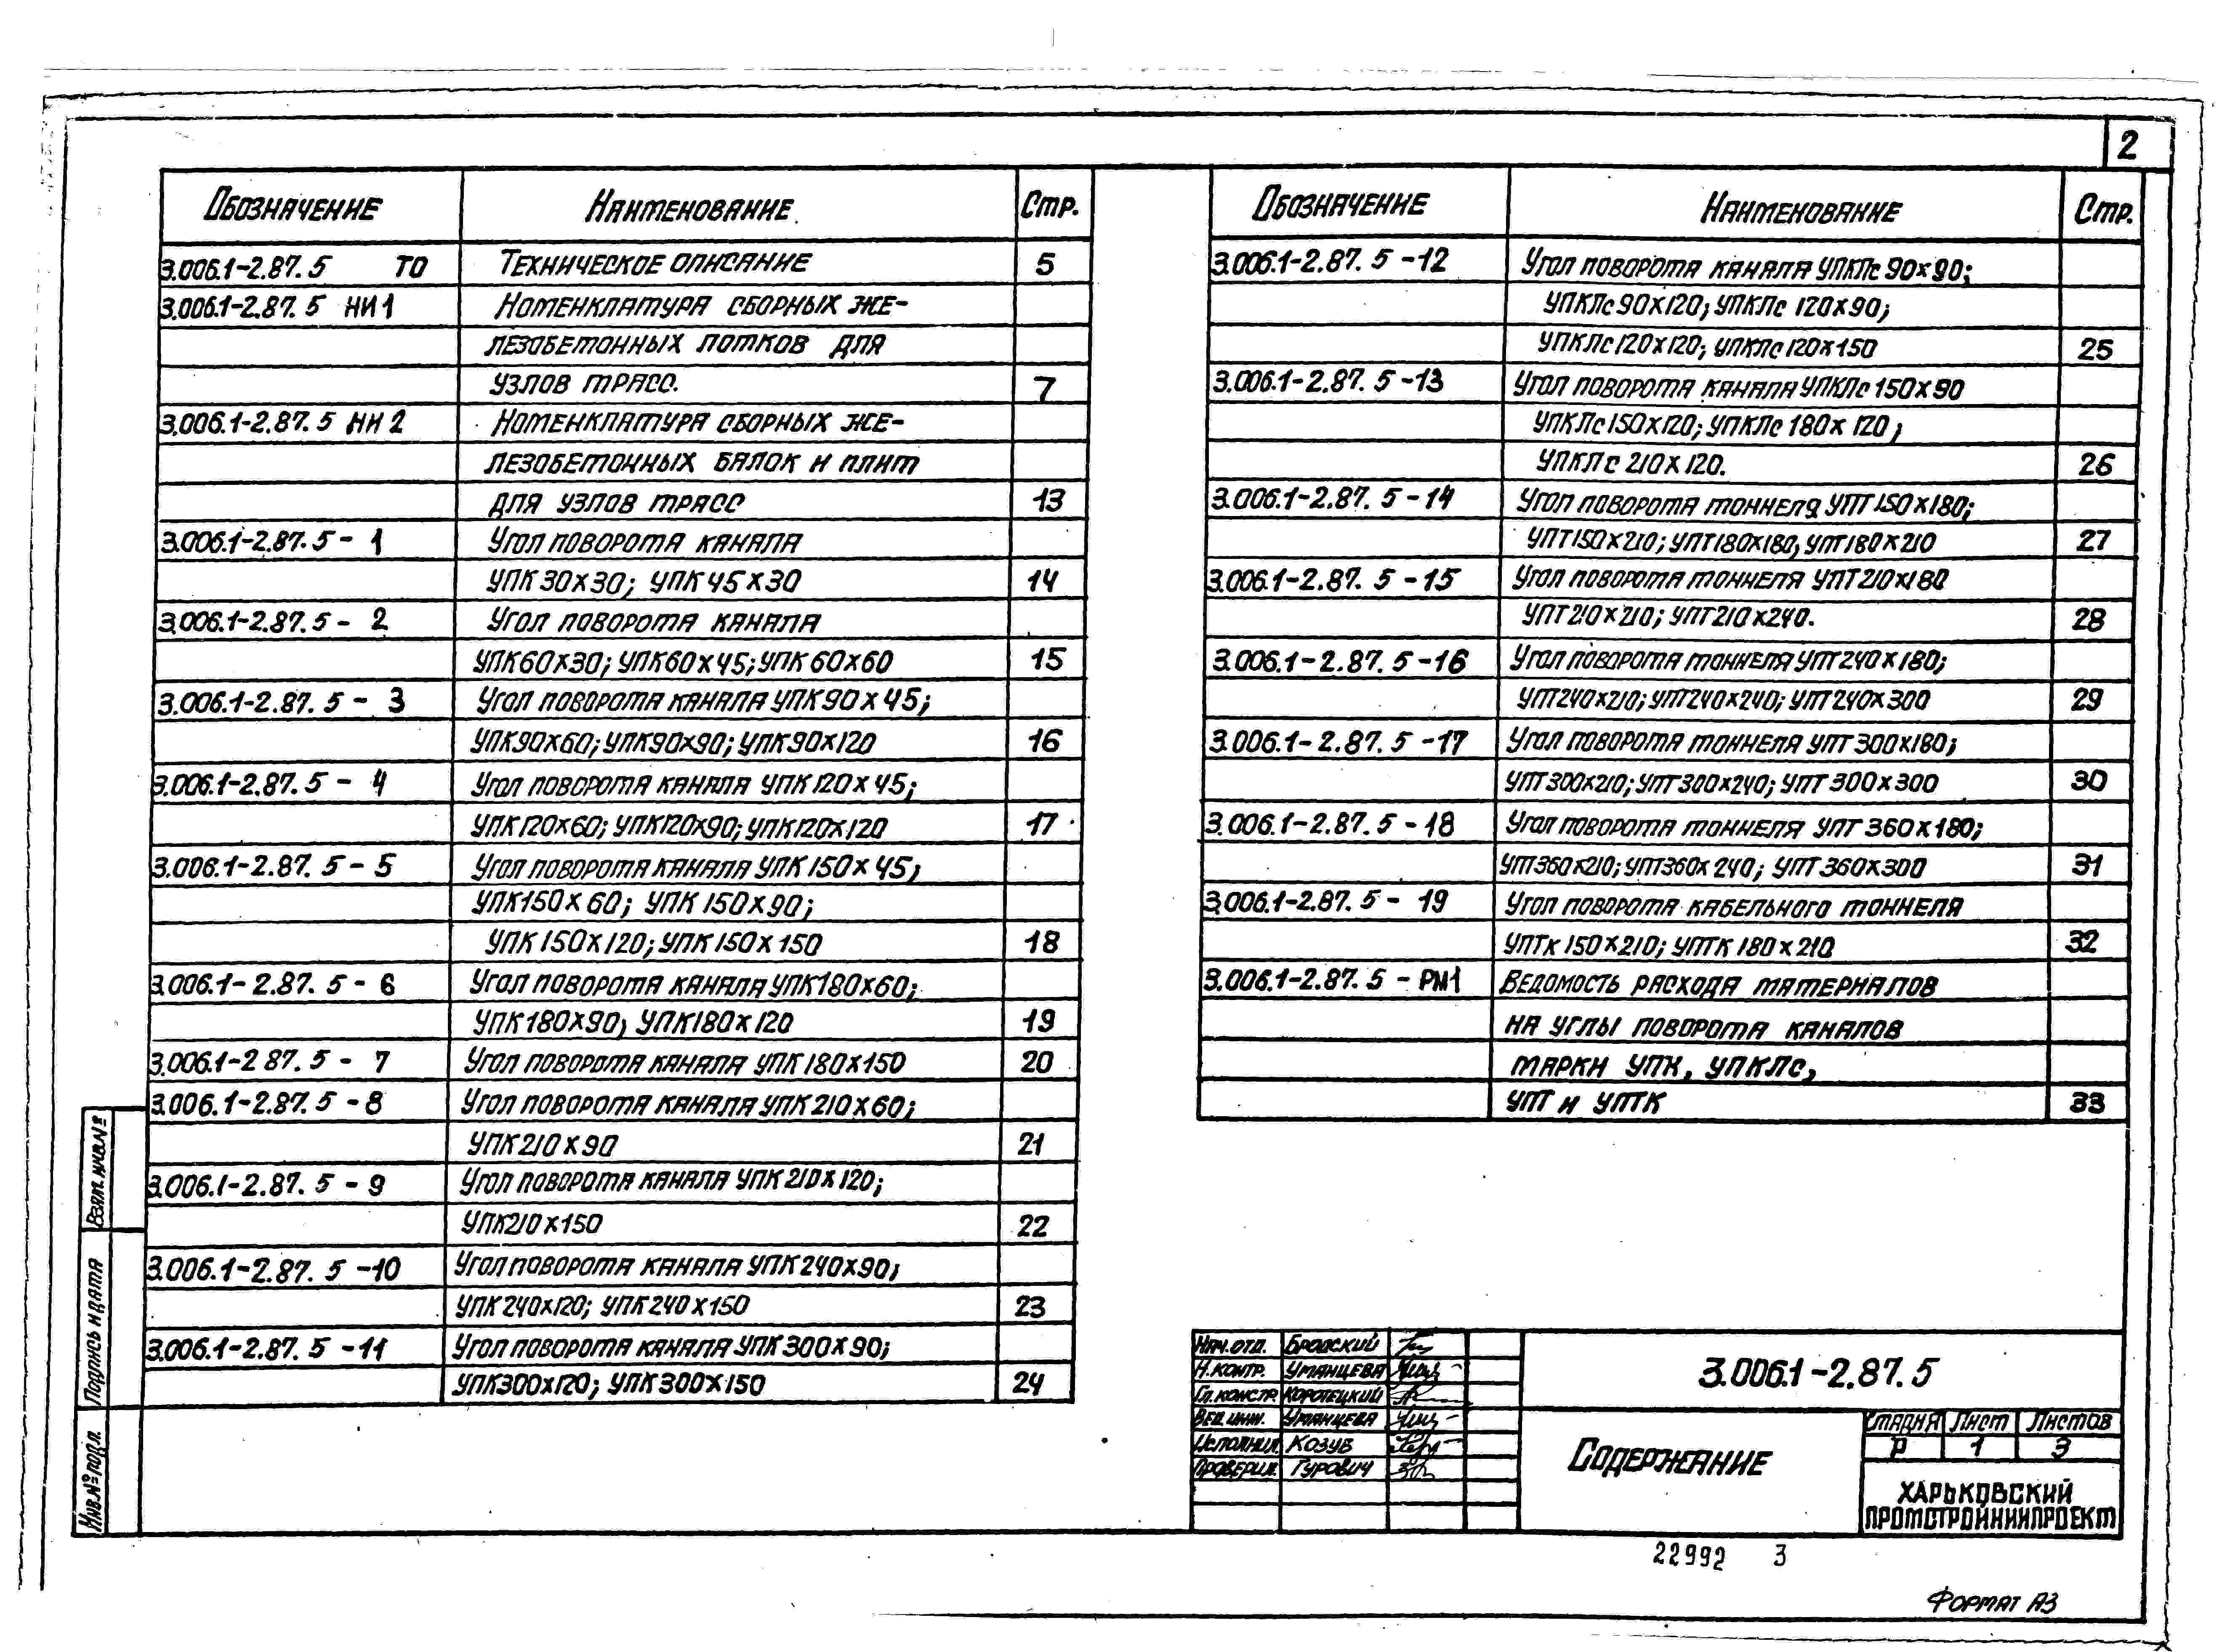 2
Обозначение Наименование Стр.
3.006.1-2.87.5 ТО Техническое описание 5
3.006.1-2.87.5 НИ1 Номенклатура сборных же-
лезобетонных лотков для
узлов трасс. 7
3.006.1-2.87.5 НИ2 Номенклатура сборных же-
лезобетонных балок и плит
для узлов трасс 13
3.006.1-2.87.5 - 1 Угол поворота канала
УПК 30х30; УПК 45х30 14
3.006.1-2.87.5 - 2 Угол поворота канала
УПК60х30; УПК60х45; УПК 60х60 15
3.006.1-2.87.5 - 3 Угол поворота канала УПК90х45;
УПК90х60; УПК90х90; УПК90х120 16
3.006.1-2.87.5 - 4 Угол поворота канала УПК120х45;
УПК120х60; УПК120х90; УПК120х120 17
3.006.1-2.87.5 - 5 Угол поворота канала УПК150х45;
УПК150х60; УПК150х90;
УПК150х120; УПК150х150 18
3.006.1-2.87.5 - 6 Угол поворота канала УПК180х60;
УПК180х90; УПК180х120 19
3.006.1-2 87.5 - 7 Угол поворота канала УПК180х150 20
3.006.1-2.87.5 - 8 Угол поворота канала УПК210х60;
УПК210х90 21
3.006.1-2.87.5 - 9 Угол поворота канала УПК210х120;
УПК210х150 22
3.006.1-2.87.5 -10 Угол поворота канала УПК240х90;
УПК240х120; УПК240х150 23
3.006.1-2.87.5 -11 Угол поворота канала УПК300х90;
УПК300х120; УПК300х150 24
Обозначение Наименование Стр.
3.006.1-2.87.5 -12 Угол поворота канала УПКЛс90х90;
УПКЛс90х120; УПКЛс120х90;
УПКЛс120х120; УПКЛс120х150 25
3.006.1-2.87.5 -13 Угол поворота канала УПКЛс150х90
УПКЛс150х120; УПКЛс180х120;
УПКЛс210х120. 26
3.006.1-2.87.5 -14 Угол поворота тоннеля УПТ150х180;
УПТ150х210; УПТ180х180, УПТ180х210 27
3.006.1-2.87.5 -15 Угол поворота тоннеля УПТ210х180
УПТ210х210; УПТ210х240. 28
3.006.1-2.87.5 -16 Угол поворота тоннеля УПТ240х180;
УПТ240х210; УПТ240х240; УПТ240х300 29
3.006.1-2.87.5 -17 Угол поворота тоннеля УПТ300х180;
УПТ300х210; УПТ300х240; УПТ300х300 30
3.006.1-2.87.5 -18 Угол поворота тоннеля УПТ360х180;
УПТ360х210; УПТ360х240; УПТ360х300 31
3.006.1-2.87.5 - 19 Угол поворота кабельного тоннеля
УПТк150х210; УПТК180х210 32
3.006.1-2.87.5 - РМ1 Ведомость расхода материалов
на углы поворота каналов
марки УПК, УПКЛс,
УПТ и УПТК 33
Взам.инв.№
Подпись и дата
Инв.№ подл.
Нач.отд. Бродский
Н.контр. Уманцева
Гл.констр Коротецкий
Вед.инж. Уманцева
Исполнил Козуб
Проверил Гурович
3.006.1-2.87.5
Содержание
Стадия Лист Листов
Р 1 3
ХАРЬКОВСКИЙ
ПРОМСТРОЙНИИПРОЕКТ
22992 3
Формат А3